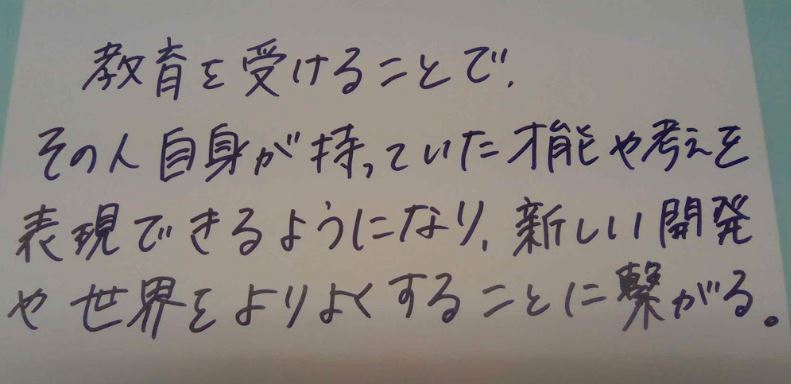 教育を受けることで、
その人自身が持っていた才能や考えを
表現できるようになり、新しい開発
や世界をよりよくすることに繋がる。